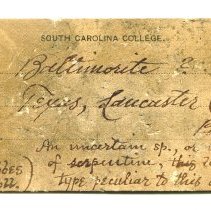 SOUTH CAROLINA COLLEGE.
Baltimorite
Texas, Lancaster
An uncertain sp., or
of serpentine,
type peculiar to this